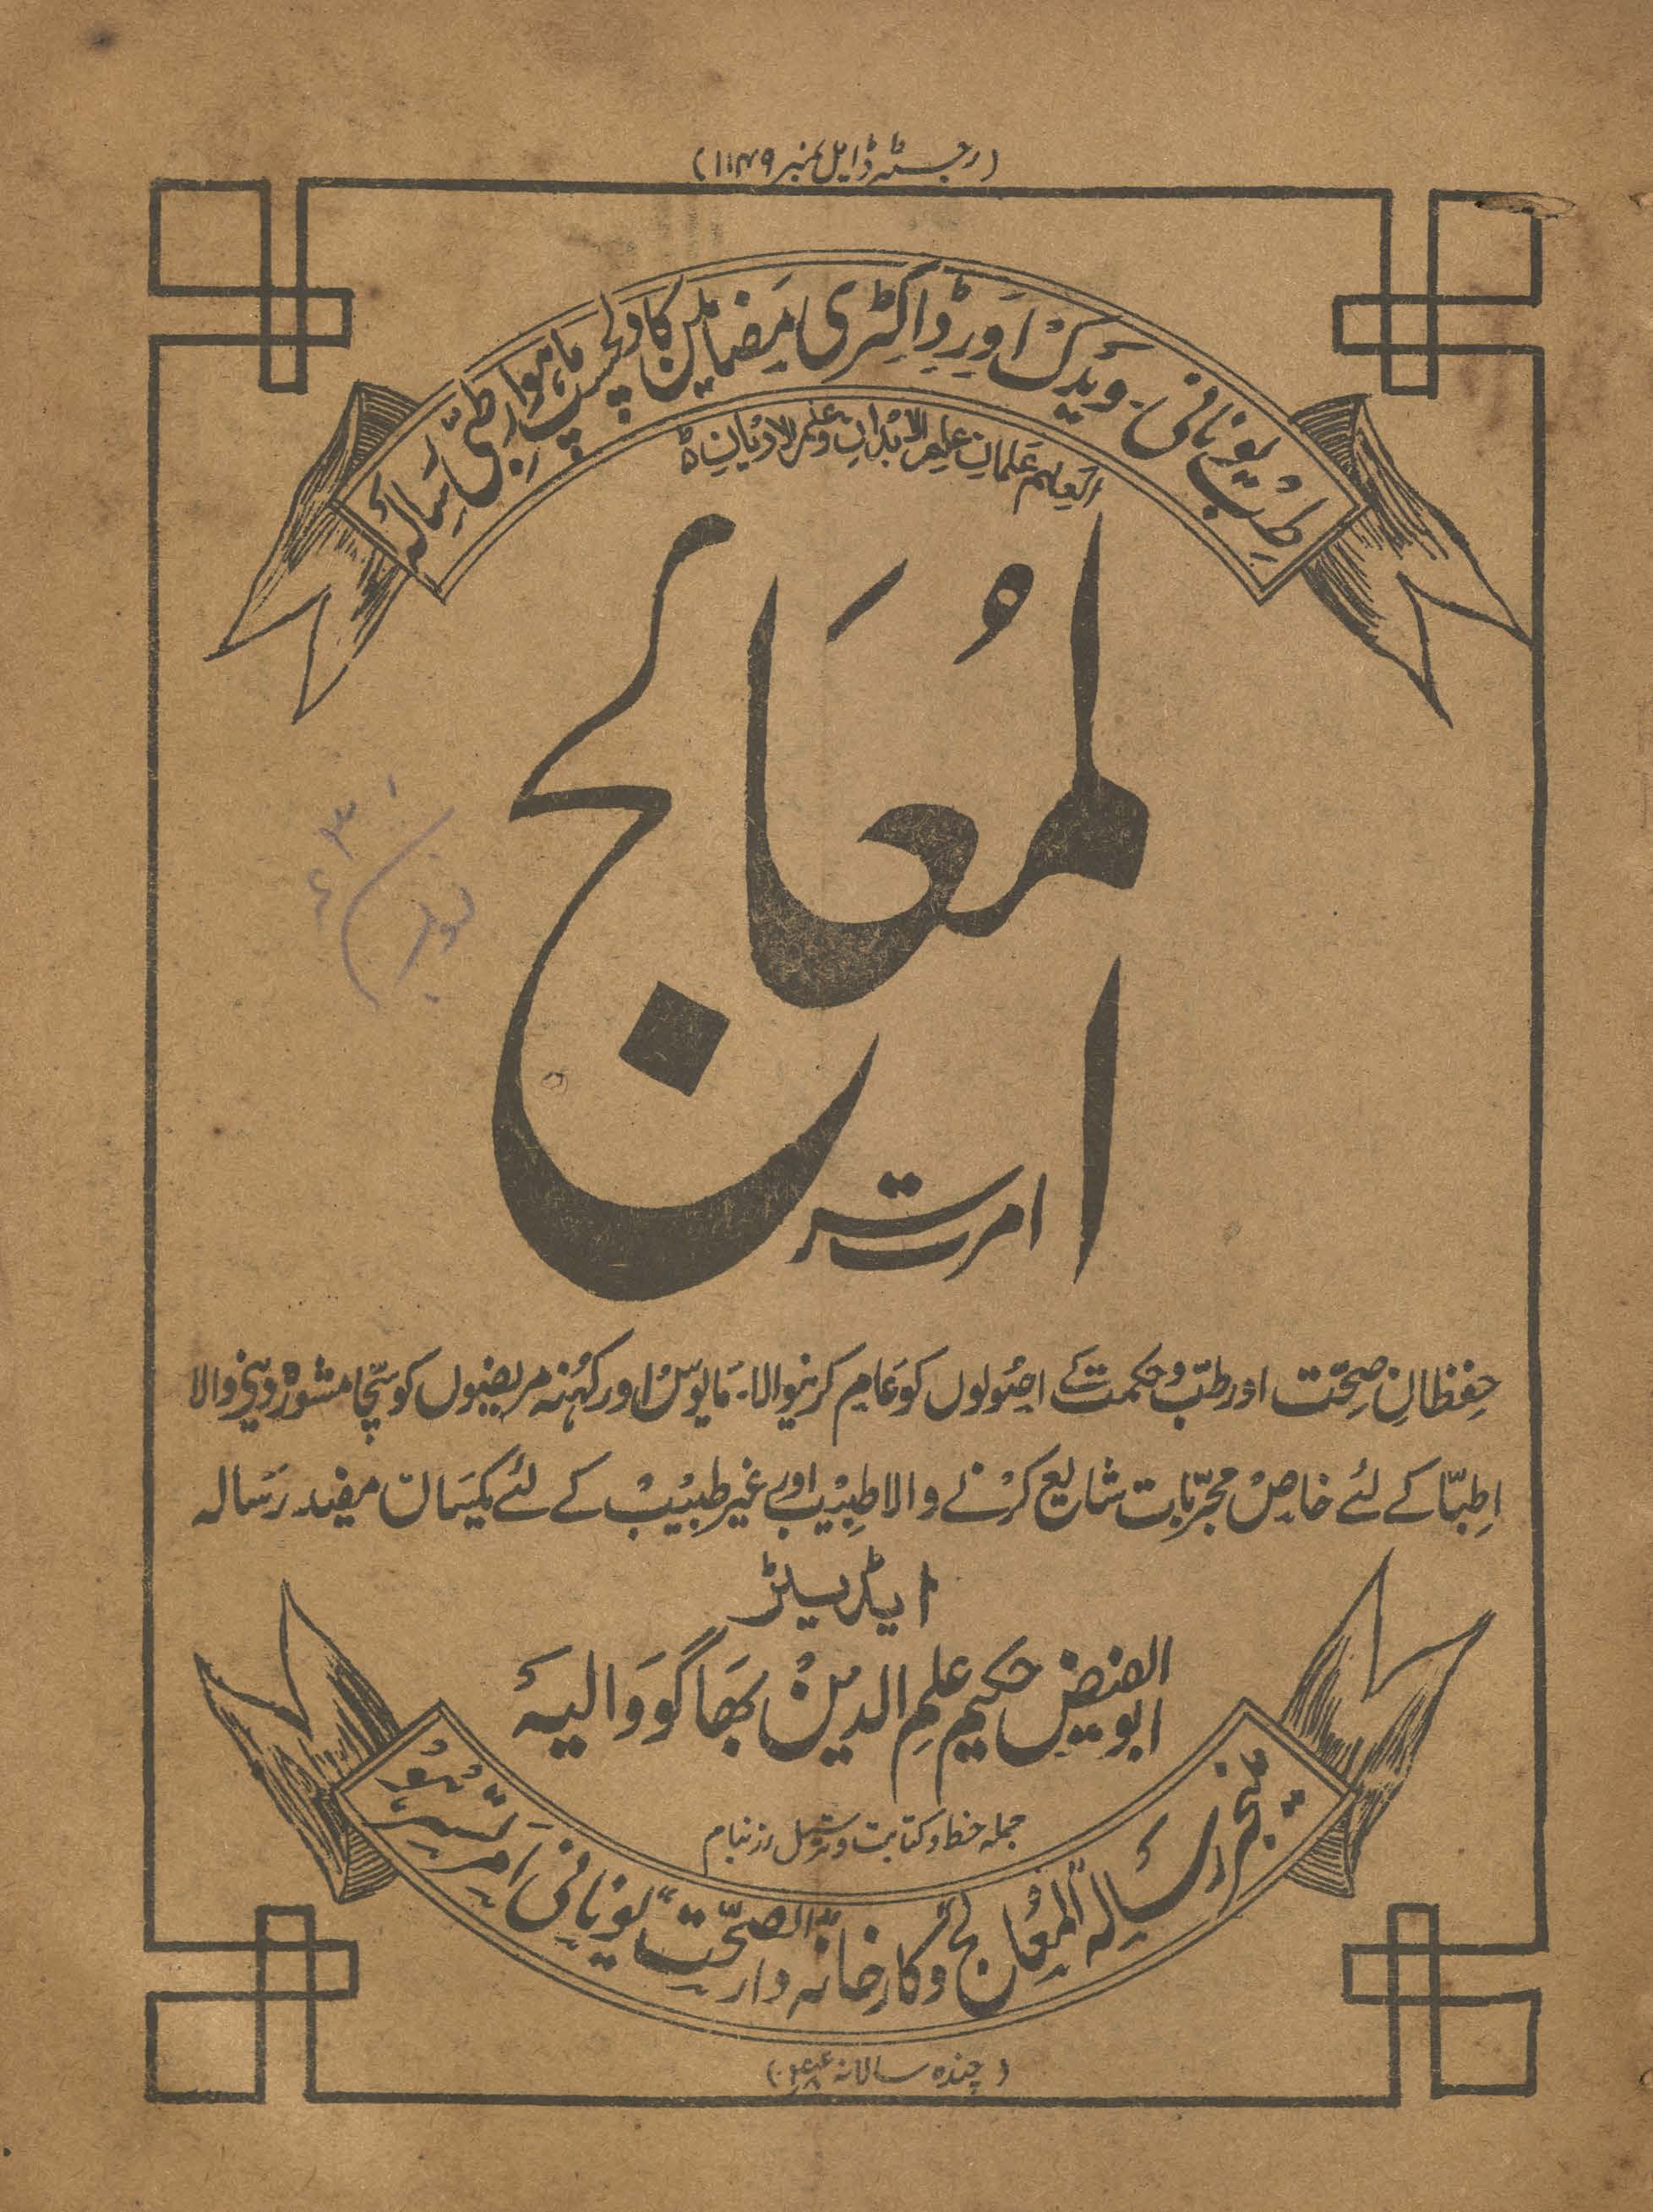 (رجسٹرڈ ایل نمبر ۱۱۴۹)
طب یونانی - ویدک اور ڈاکٹری مضامین کا دلچسپ ماہوار طبی رسالہ
العلم علمان علم الابدان وعلم الادیان ہ
المعالج
امرت سر
حفظانِ صحت اور طب وحکمت کے اصولوں کو عام کرنیوالا - مایوس اور کہنہ مریضوں کو سچا مشورہ دینے والا
اطبّا کے لئے خاص مجرّبات شایع کرنے والا طبیب اور غیر طبیب کے لئے یکساں مفید رسالہ
ایڈیٹر
ابوالفیض حکیم علم الدین بھاگووالیہ
جملہ خط و کتابت و ترسیل زر بنام
منیجر رسالہ "المعالج" و کارخانہ "دارالصحت" یونانی امرتسر ہو
(چندہ سالانہ)